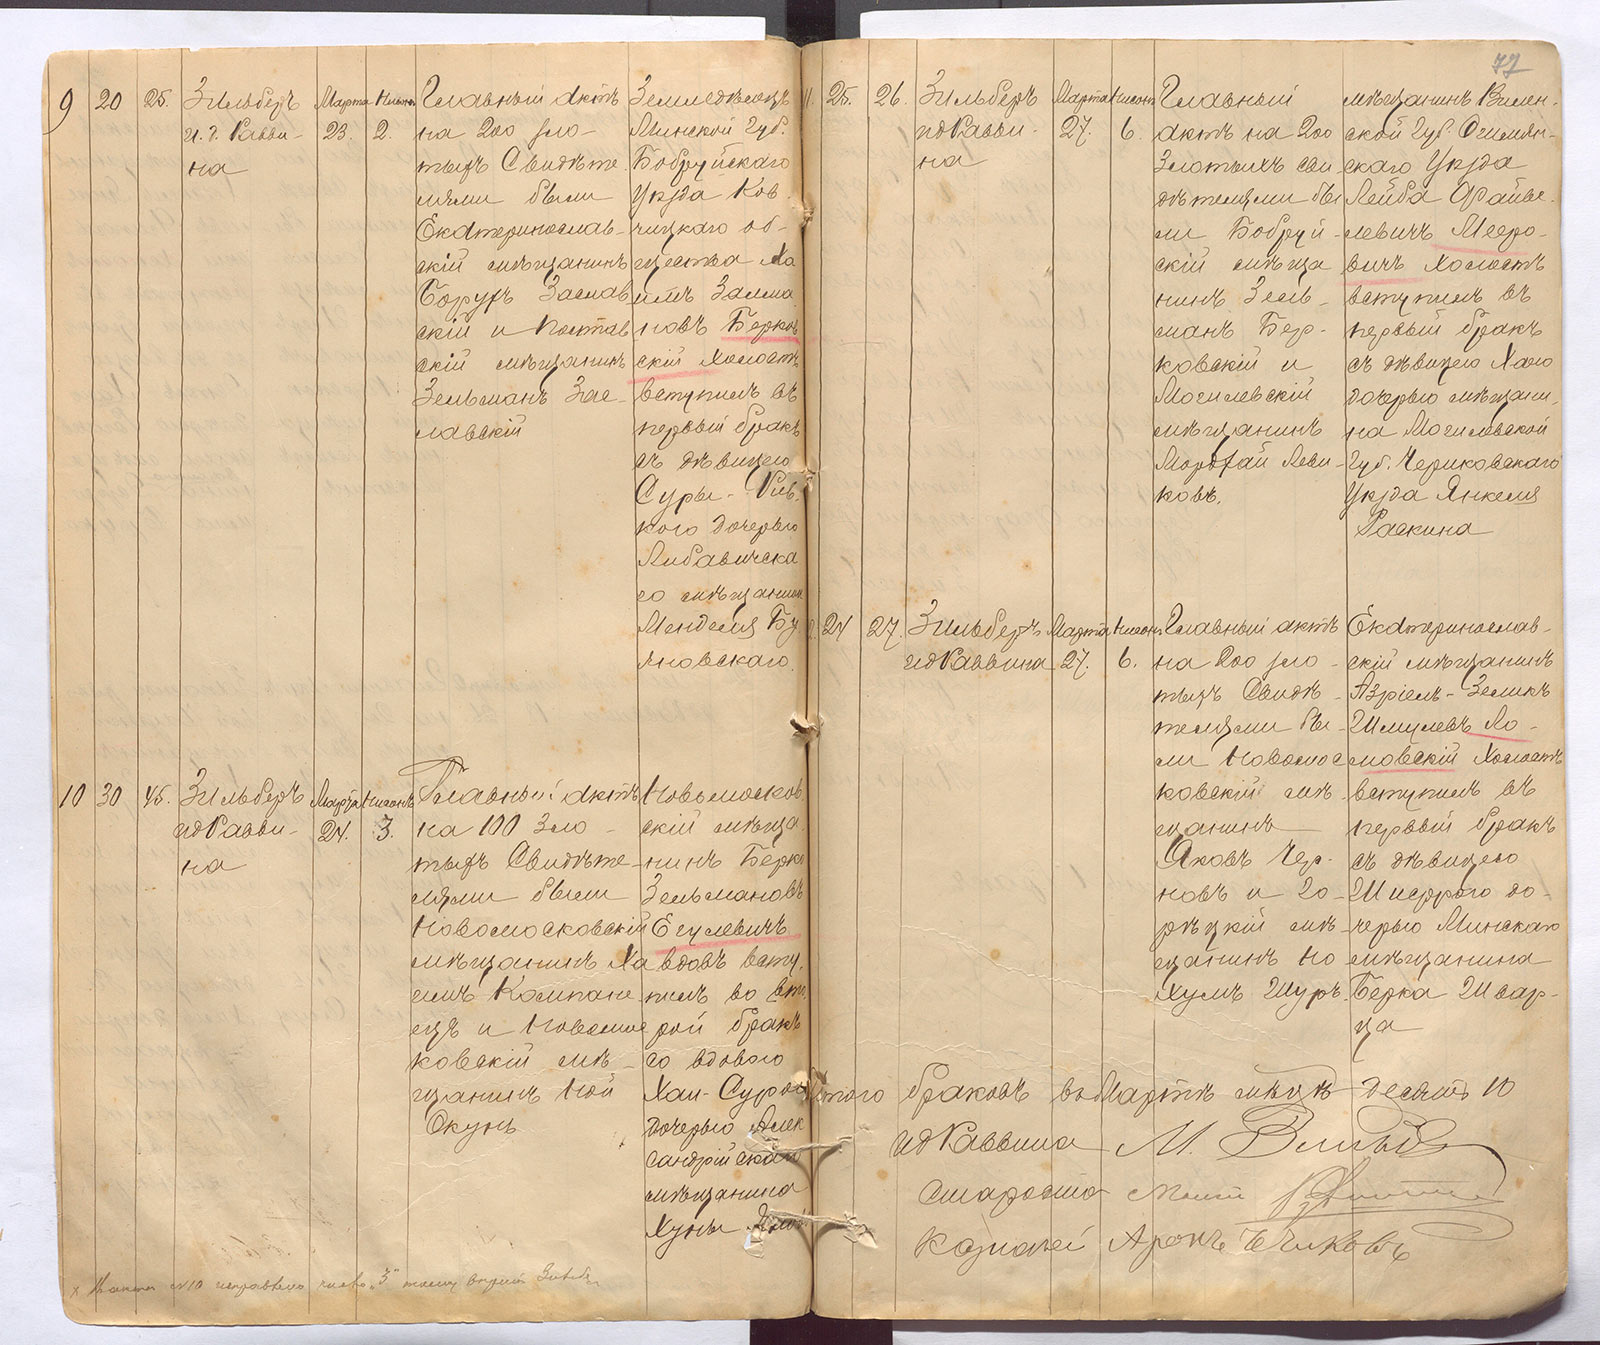 9
20
25.
Зильберъ
и. д. Равви-
на
Марта
23.
Нисонъ
2.
Главный Актъ
на 200 зло-
тыхъ Свидѣте
лями были
Екатеринослав-
скій мѣщанинъ
Борухъ Заслав
скій и
скій мѣщанинъ
Зельманъ Зас-
лавскій
Земледѣлецъ
Минской Губ.
Бобруйскаго
Уѣзда Ков
чицкаго об-
щества Ха
имъ Залма
новъ Берков
скій Холостъ
вступилъ въ
первый бракъ
съ дѣвицею
Суры-Рив.
кого дочерью
Либавичска
го мѣщанин
Менделя Бу
яновскаго.
10
30
45.
Зильберъ
ид Равви-
на
Марта
24.
Нисонъ
3.
Главный актъ
на 100 Зло-
тыхъ Свидѣте-
лями были
Новомосковскій
мѣщанинъ Ха
имъ Компане
ецъ и Новомос
ковскій мѣ-
щанинъ Ной
Окунь
Новомосков
скій мѣща
нинъ Берко
Зельмановъ
Егулевичъ
вдовъ всту.
пилъ во вто
рой бракъ
со вдового
Хаи-Сурою
дочерью Алек
сандрійскаго
мѣщанина
Хуны
№ 10 исправлено число „3"
77
11.
25.
26.
Зильберъ
ид Равви-
на
Марта
27.
Нисонъ
6.
Главный
актъ на 200
Злотыхъ сви
дѣтелями бы
ли Бобруй-
скій мѣща
нинъ Зель-
манъ Бер-
ковскій и
Могилевскій
мѣщанинъ
Мордхай Леви-
ковъ.
мѣщанинъ Вилен-
ской Губ. Ошмян-
скаго Уѣзда
Лейба Файве-
левичъ Мееро-
вичъ Холостъ
вступилъ въ
первый бракъ
съ дѣвицею Хаею
дочерью мѣщани-
на Могилевской
Губ. Чериковскаго
Уѣзда Янкеля
Раскина
24
27.
Зильберъ
ид Раввина
Марта
27.
Нисонъ
6.
Главный актъ
на 200 зло-
тыхъ Свидѣ-
телями бы-
ли Новомос
ковскій мѣ-
щанинъ
Яковъ Чер-
новъ и Го-
рѣцкій мѣ-
щанинъ Но
хумъ Шуръ.
Екатеринослав-
скій мѣщанинъ
Азріель-Зеликъ
Шмулевъ Ло-
мовскій Холостъ
вступилъ въ
первый бракъ
съ дѣвицею
Шифрого до-
черью Минскаго
мѣщанина
Берка Швар-
ца
Итого браковъ въ Мартѣ мѣцѣ десять 10
ид Раввина М. Зильберъ
Староста
Казначей Аронъ